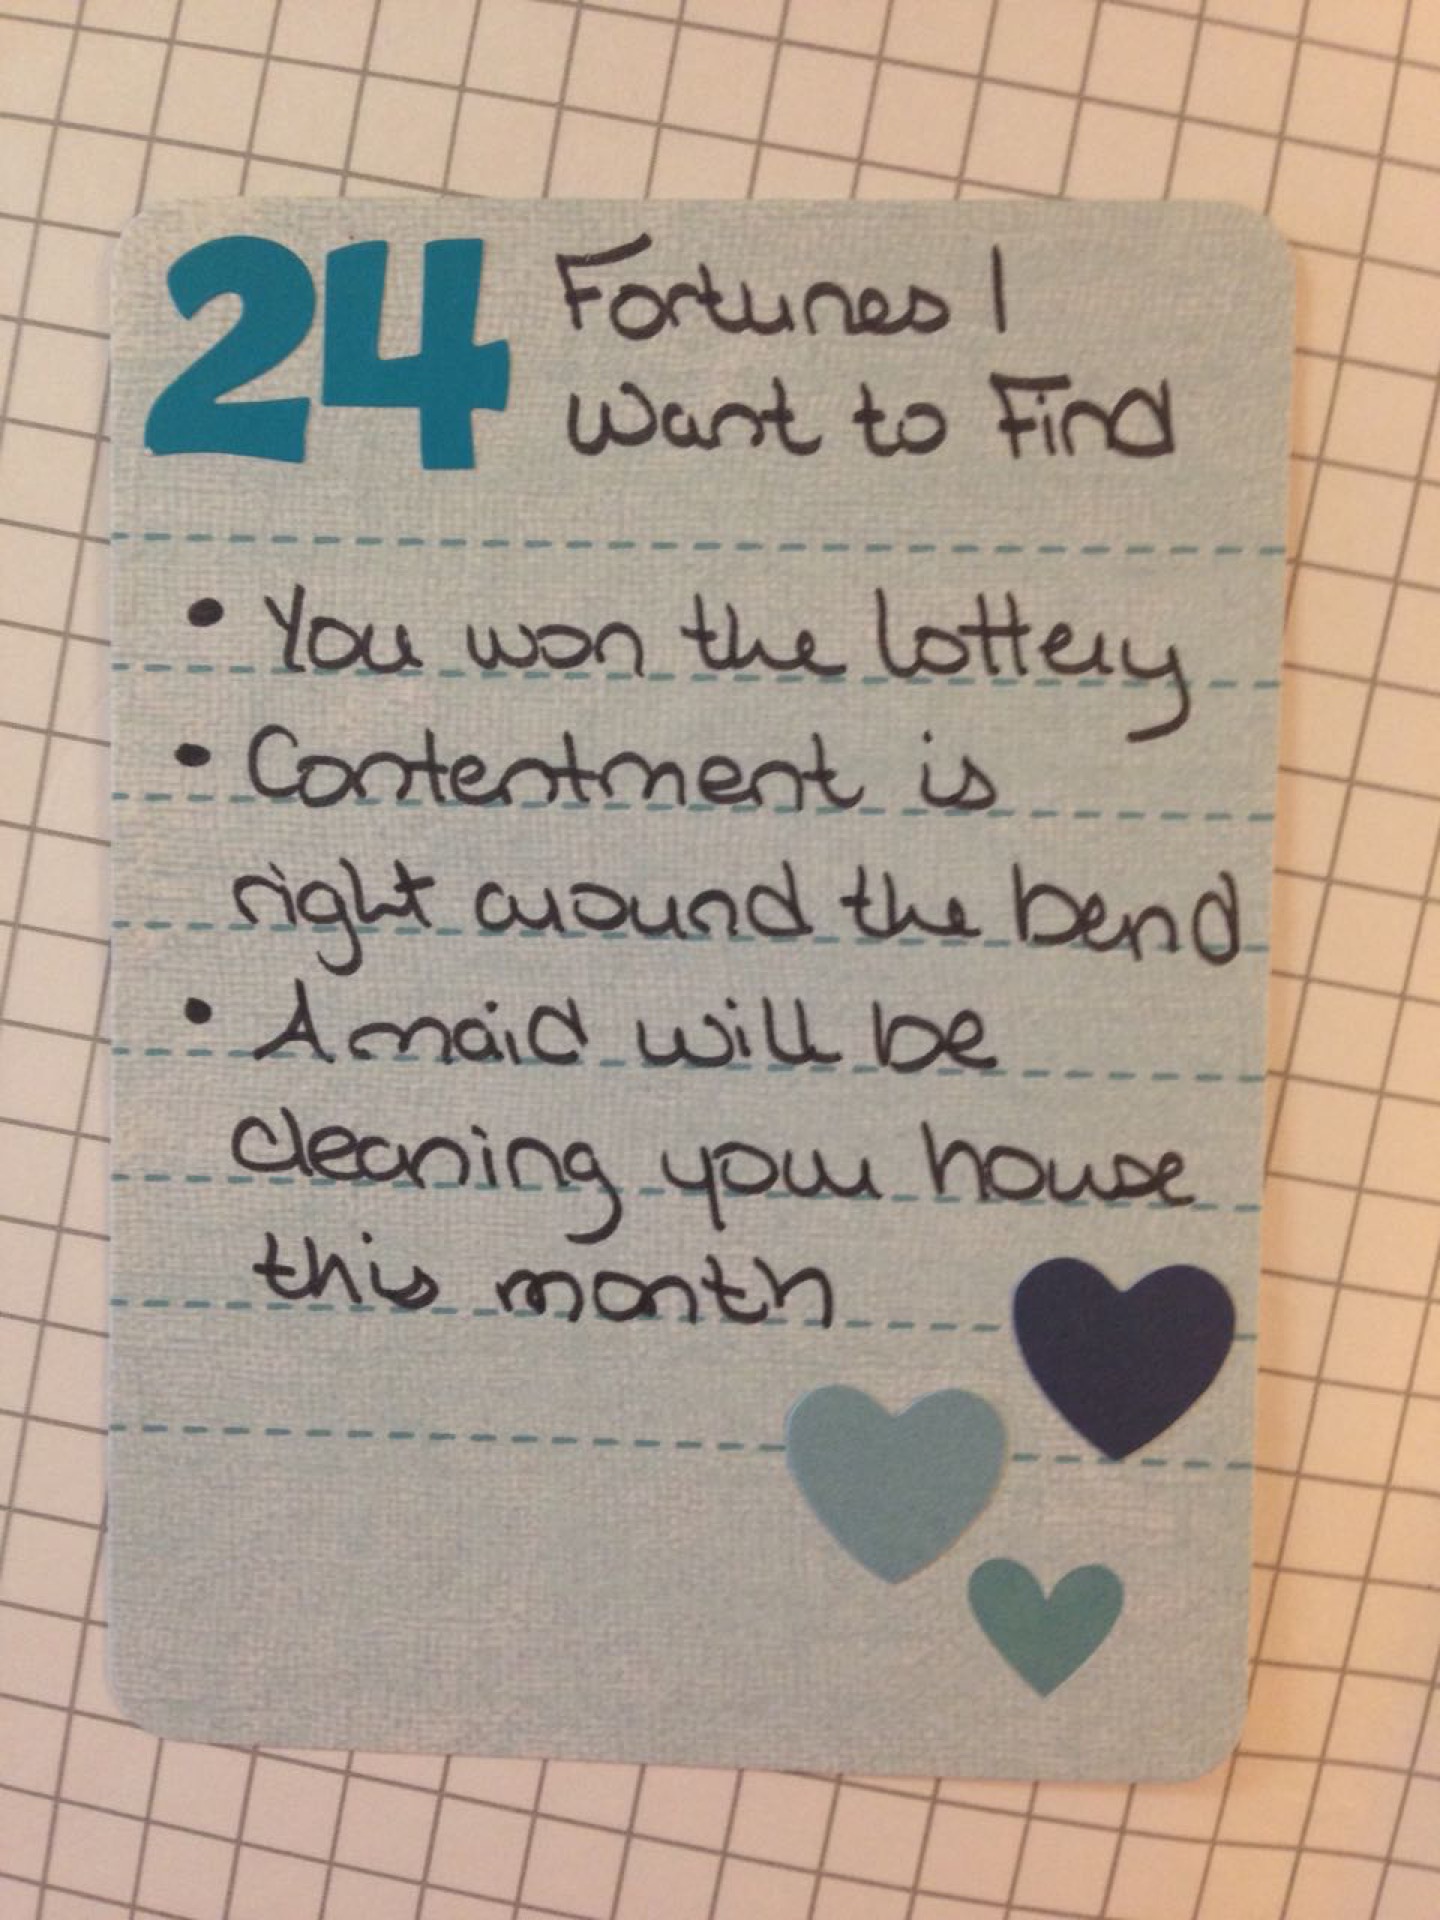 24 Fortunes I
Want to Find
• You won the lottery
• Contentment is
right around the bend
• A maid will be
cleaning your house
this month